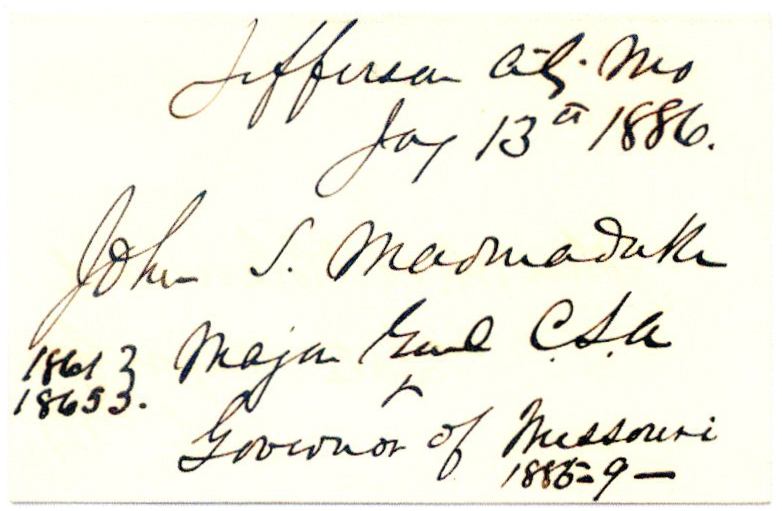 Jefferson City. Mo
Jany 13th 1886.
John S. Marmaduke
1861 } Major Genl C.S.A
1865 }.
&
Governor of Missouri
1885=9 —